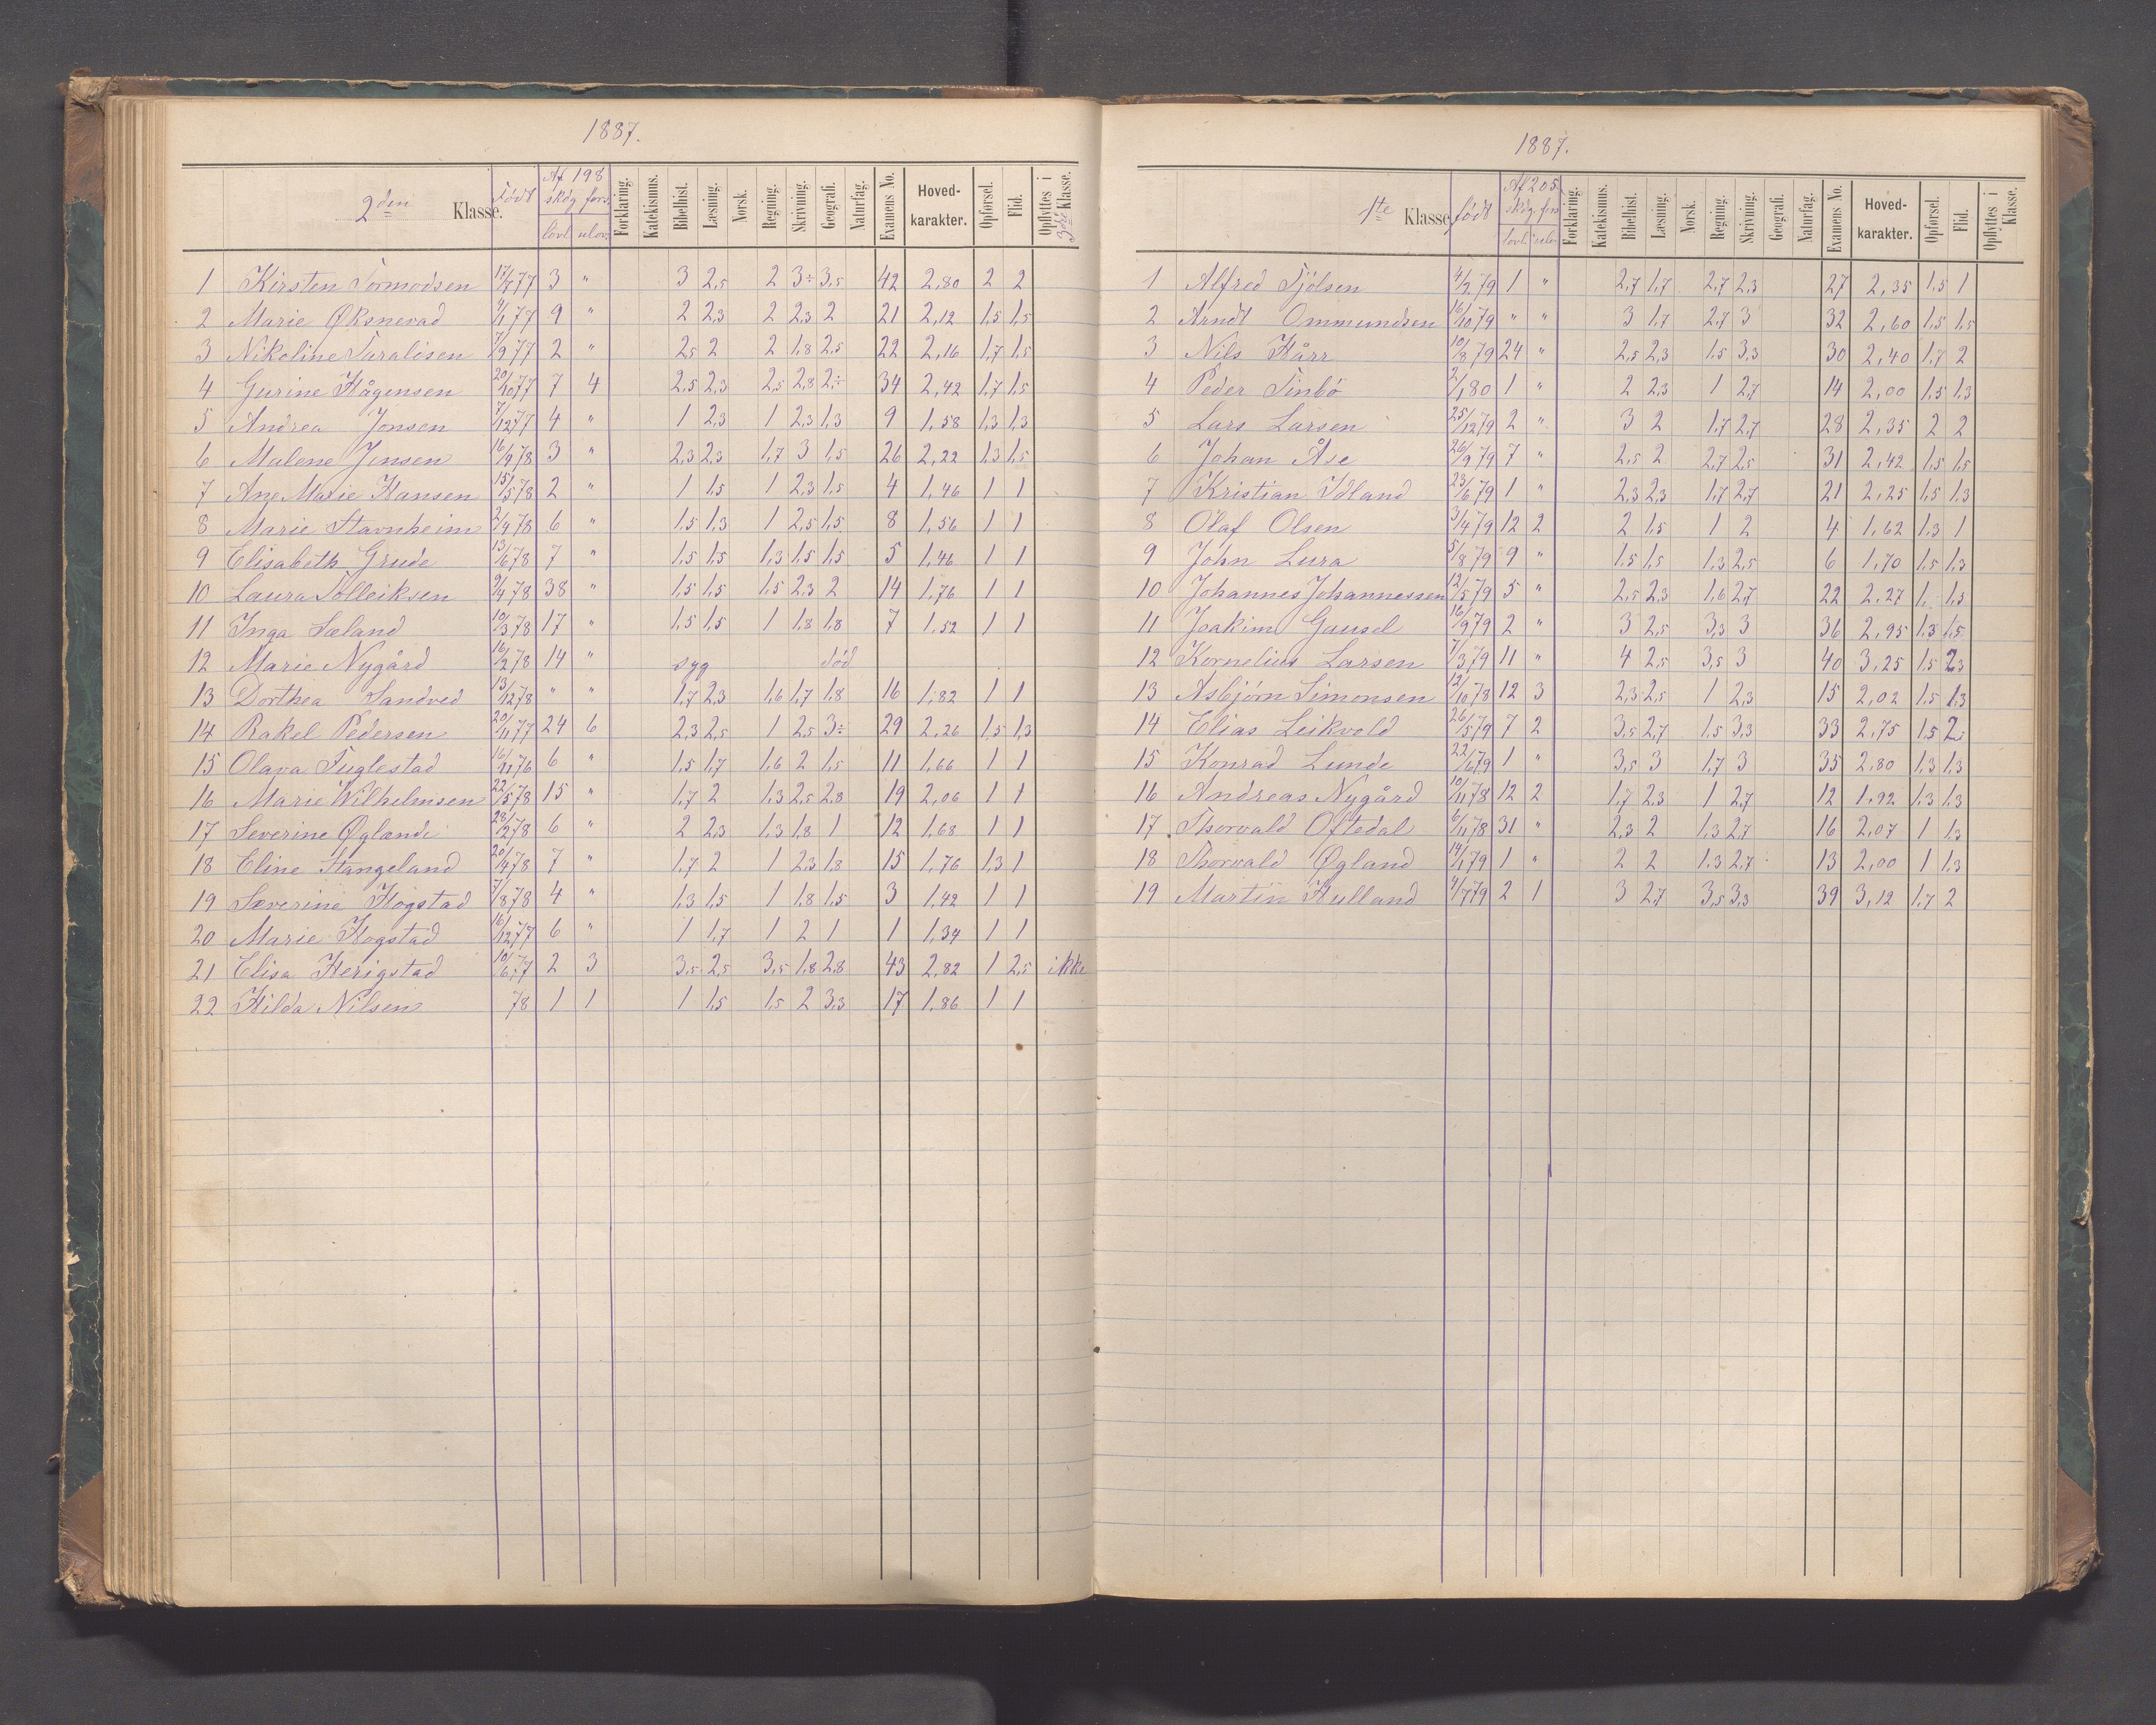 1887.
2den Klasse. Født Af 198 skdg. fors. lovl. ulov. Forklaring. Katekismus. Bibelhist. Læsning. Norsk. Regning. Skrivning. Geografi. Naturfag. Examens No. Hoved-karakter. Opførsel. Flid. Opflyttes i 3die Klasse.
1 Kirsten Tormodsen 17/7 77 3 " 3 2,5 2 3÷ 3,5 42 2,80 2 2
2 Marie Øksnevad 4/1 77 9 " 2 2,3 2 2,3 2 21 2,12 1,5 1,5
3 Nikoline Taraldsen 7/9 77 2 " 2,5 2 2 1,8 2,5 22 2,16 1,7 1,5
4 Gurine Hågensen 20/10 77 7 4 2,5 2,3 2,5 2,8 2÷ 34 2,42 1,7 1,5
5 Andrea Jonsen 7/12 77 4 " 1 2,3 1 2,3 1,3 9 1,58 1,3 1,3
6 Malene Jensen 16/9 78 3 " 2,3 2,3 1,7 3 1,5 26 2,22 1,3 1,5
7 Ane Marie Hansen 15/5 78 2 " 1 1,5 1 2,3 1,5 4 1,46 1 1
8 Marie Stavnheim 2/4 78 6 " 1,5 1,3 1 2,5 1,5 8 1,56 1 1
9 Elisabeth Grude 13/6 78 7 " 1,5 1,5 1,3 1,5 1,5 5 1,46 1 1
10 Laura Tolleiksen 9/4 78 38 " 1,5 1,5 1,5 2,3 2 14 1,76 1 1
11 Inga Læland 10/3 78 17 " 1,5 1,5 1 1,8 1,8 7 1,52 1 1
12 Marie Nygård 16/2 78 14 " syg død
13 Dorthea Sandved 13/12 78 " " 1,7 2,3 1,6 1,7 1,8 16 1,82 1 1
14 Rakel Pedersen 20/11 77 24 6 2,3 2,5 1 2,5 3÷ 29 2,26 1,5 1,3
15 Olava Fuglestad 16/11 76 6 " 1,5 1,7 1,6 2 1,5 11 1,66 1 1
16 Marie Wilhelmsen 22/5 78 15 " 1,7 2 1,3 2,5 2,8 19 2,06 1 1
17 Severine Øglænde 28/2 78 6 " 2 2,3 1,3 1,8 1 12 1,68 1 1
18 Eline Stangeland 20/4 78 7 " 1,7 2 1 2,3 1,8 15 1,76 1,3 1
19 Severine Hogstad 7/8 78 4 " 1,3 1,5 1 1,8 1,5 3 1,42 1 1
20 Marie Hogstad 16/12 77 6 " 1 1,7 1 2 1 1 1,34 1 1
21 Elisa Herigstad 10/6 77 2 3 3,5 2,5 3,5 1,8 2,8 43 2,82 1 2,5 ikke
22 Hilda Nilsen 78 1 1 1 1,5 1,5 2 3,3 17 1,86 1 1
1887.
1ste Klasse født Af 205 skdg. fors lovl. ulov Forklaring. Katekismus. Bibelhist. Læsning. Norsk. Regning. Skrivning. Geografi. Naturfag. Examens No. Hoved-karakter. Opførsel. Flid. Opflyttes i Klasse.
1 Alfred Tjølsen 4/2 79 1 " 2,7 1,7 2,7 2,3 27 2,35 1,5 1
2 Arndt Ommundsen 16/10 79 " " 3 1,7 2,7 3 32 2,60 1,5 1,5
3 Nils Hårr 10/8 79 24 " 2,5 2,3 1,5 3,3 30 2,40 1,7 2
4 Peder Tinbø 2/1 80 1 " 2 2,3 1 2,7 14 2,00 1,5 1,3
5 Lars Larsen 25/12 79 2 " 3 2 1,7 2,7 28 2,35 2 2
6 Johan Åse 26/9 79 7 " 2,5 2 2,7 2,5 31 2,42 1,5 1,5
7 Kristian Idland 23/6 79 1 " 2,3 2,3 1,7 2,7 21 2,25 1,5 1,3
8 Olaf Olsen 3/4 79 12 2 2 1,5 1 2 4 1,62 1,3 1
9 John Lura 5/8 79 9 " 1,5 1,5 1,3 2,5 6 1,70 1,5 1,3
10 Johannes Johannessen 12/5 79 5 " 2,5 2,3 1,6 2,7 22 2,27 1, 1,5
11 Joakim Gausel 16/9 79 2 " 3 2,5 3,3 3 36 2,95 1,3 1,5
12 Kornelius Larsen 7/3 79 11 " 4 2,5 3,5 3 40 3,25 1,5 2,3
13 Asbjørn Simonsen 12/10 78 12 3 2,3 2,5 1 2,3 15 2,02 1,5 1,3
14 Elias Leikvold 26/5 79 7 2 3,5 2,7 1,5 3,3 33 2,75 1,5 2
15 Konrad Lunde 22/6 79 1 " 3,5 3 1,7 3 35 2,80 1,3 1,3
16 Andreas Nygård 10/11 78 12 2 1,7 2,3 1 2,7 12 1,92 1,3 1,3
17 Thorvald Oftedal 6/11 78 31 " 2,3 2 1,3 2,7 16 2,07 1 1,3
18 Thorvald Øgland 14/1 79 1 " 2 2 1,3 2,7 13 2,00 1 1,3
19 Martin Hulland 4/7 79 2 1 3 2,7 3,5 3,3 39 3,12 1,7 2